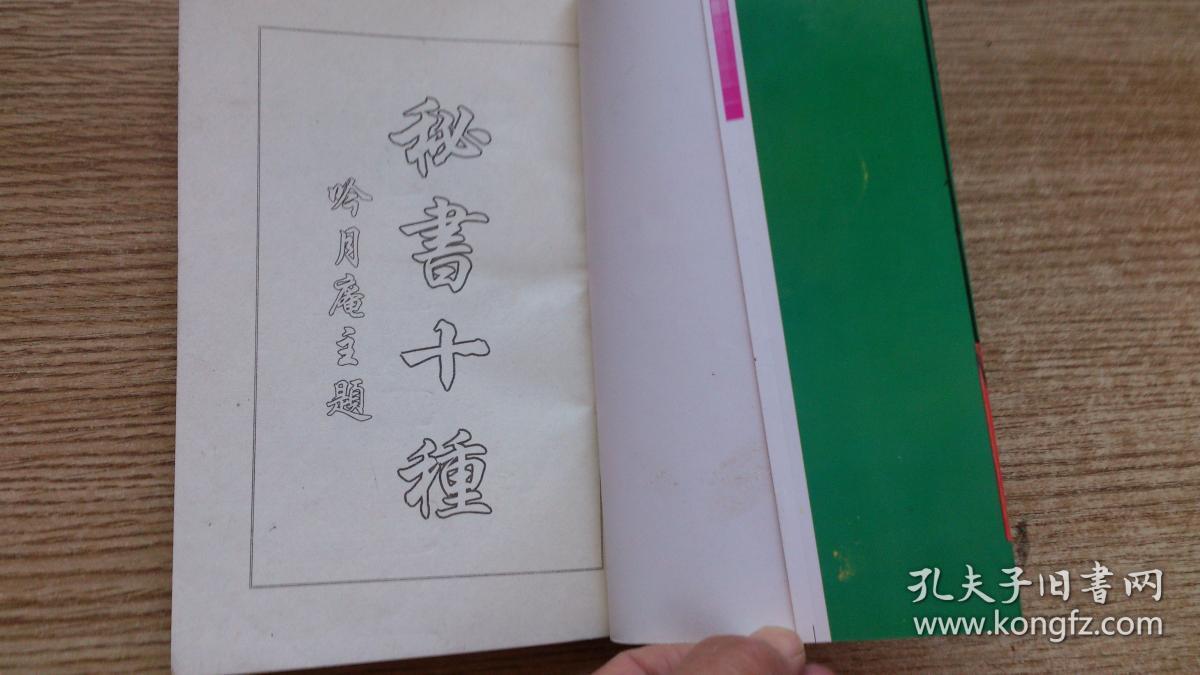 秘書十種
吟月庵主題
孔夫子旧書网
www.kongfz.com